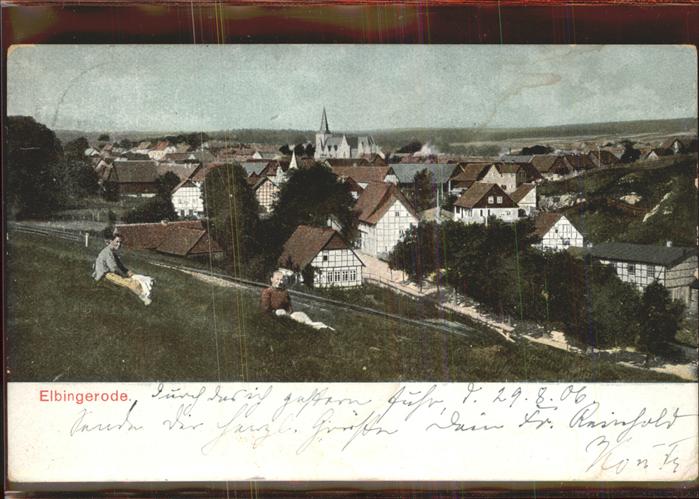 Elbingerode. Durch das ich gestern fuhr, d. 29.8.06.
Sende dir herzl. Grüße Dein Fr. Reinhold